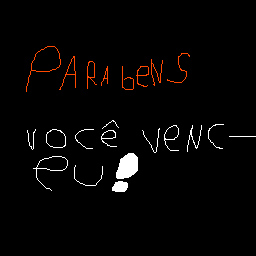 PARAbENS
VOCÊ VENC-
EU!